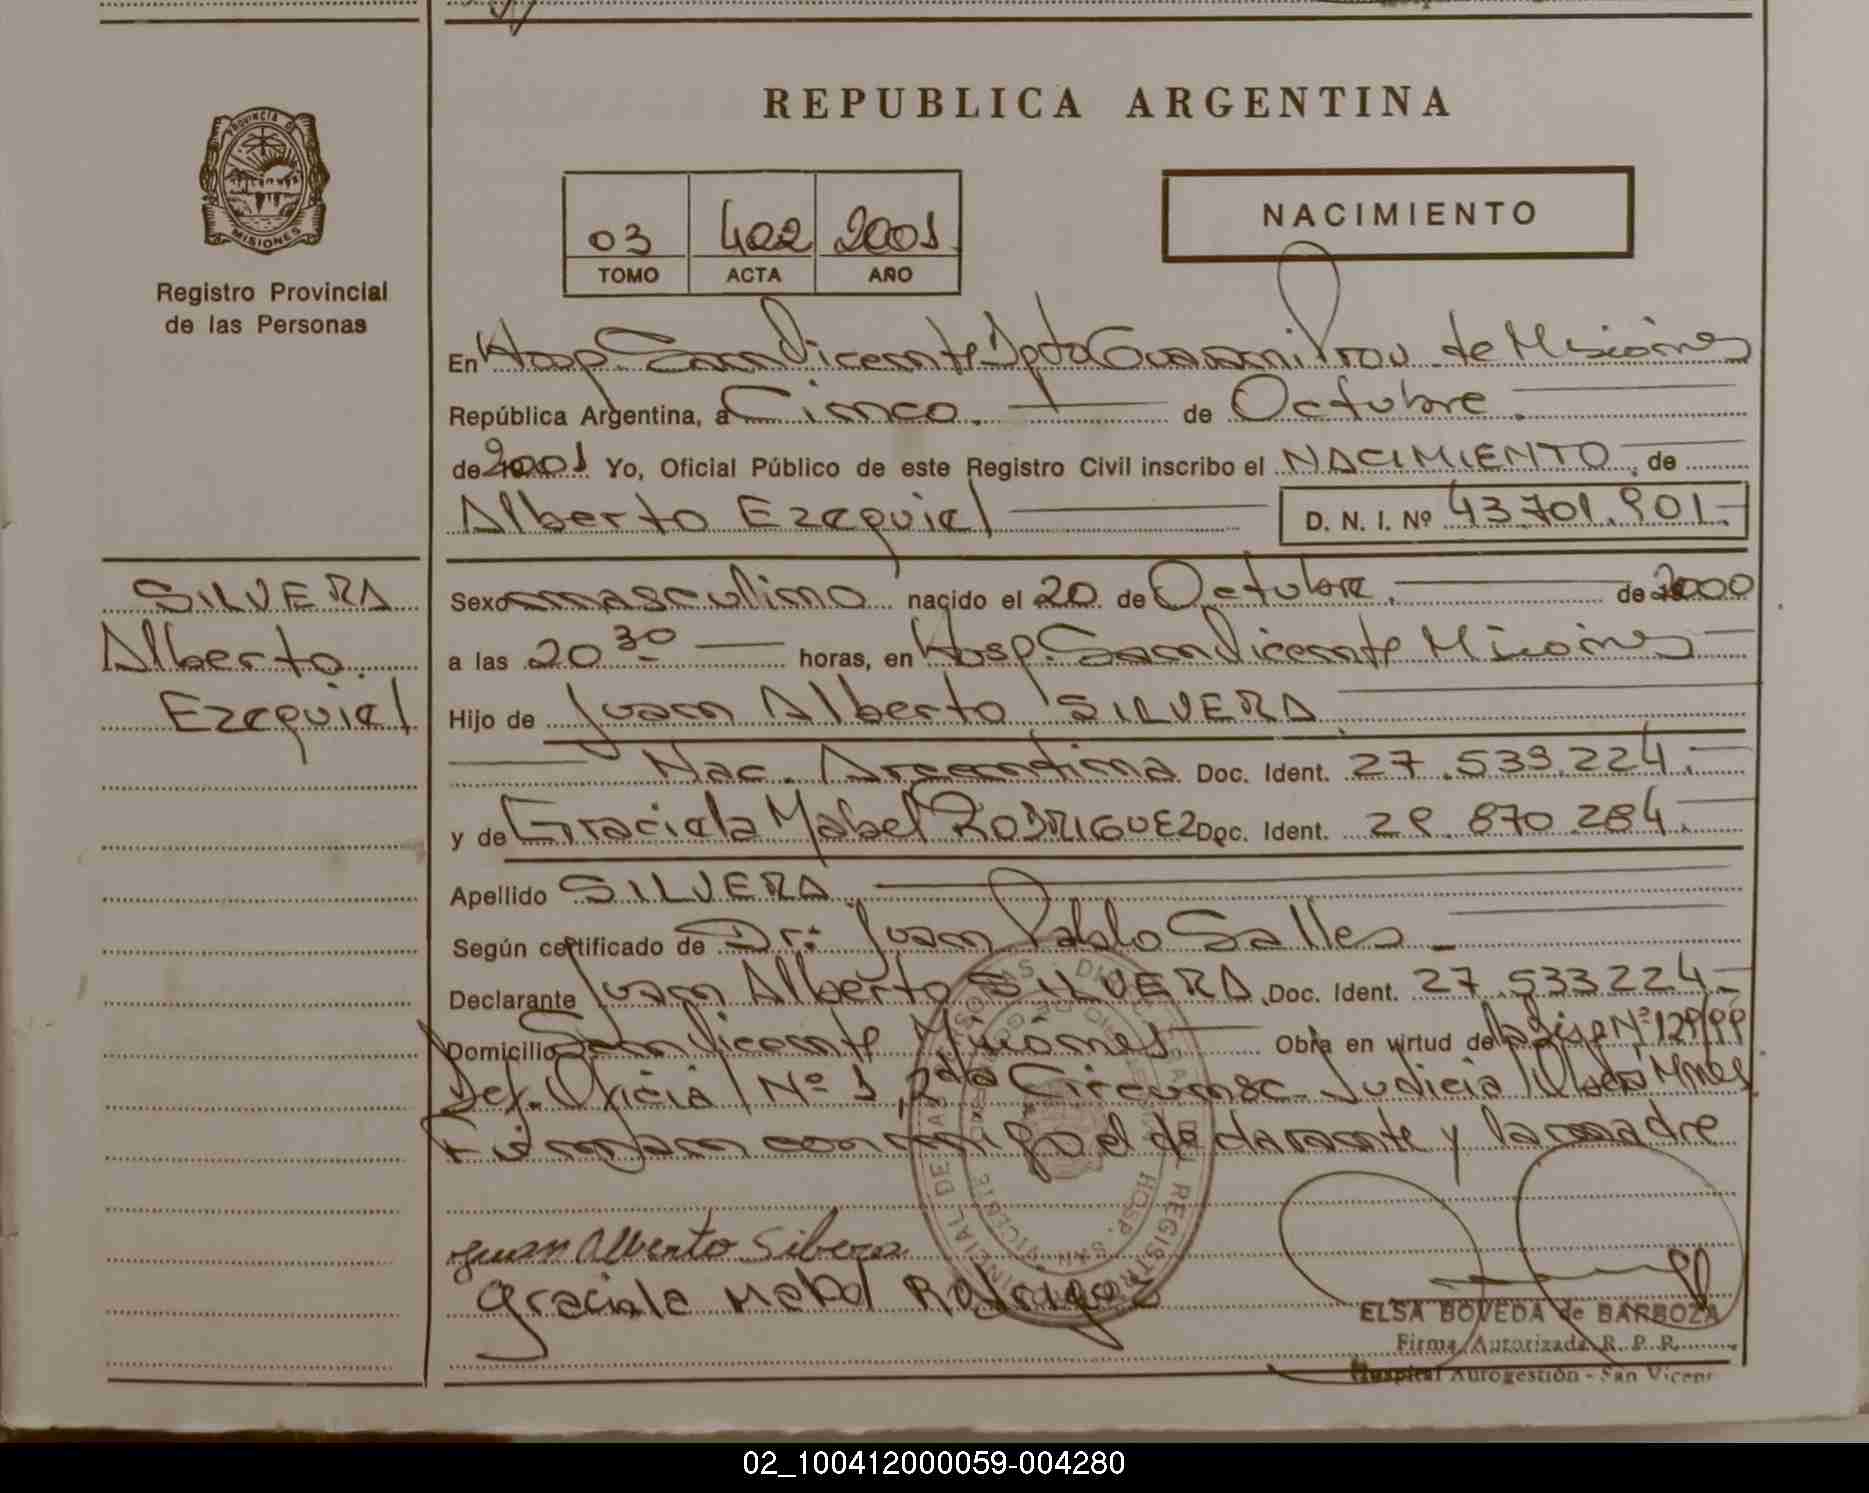 REPUBLICA ARGENTINA
PROVINCIA DE
MISIONES
Registro Provincial
de las Personas
03 402 2001
TOMO ACTA AÑO
NACIMIENTO
En Hosp. San Vicente Dpto Guaraní Prov. de Misiones
República Argentina, a Cinco. de Octubre.
de 2001 Yo, Oficial Público de este Registro Civil inscribo el NACIMIENTO, de
Alberto Ezequiel D. N. I. Nº 43.701.901.-
SILVERA
Alberto.
Ezequiel
Sexo masculino nacido el 20 de Octubre. de 2000
a las 20 30 horas, en Hosp. San Vicente Misiones
Hijo de Juan Alberto SILVERA.
Nac. Argentina. Doc. Ident. 27.533.224.-
y de Graciela Mabel RODRIGUEZ Doc. Ident. 28.870.284.-
Apellido SILVERA.
Según certificado de Dr: Juan Pablo Salles
Declarante Juan Alberto SILVERA. Doc. Ident. 27.533224.-
Domicilio San Vicente Misiones Obra en virtud de la Disp Nº 129/99
Def. Oficial Nº 1, 2da Circunsc. Judicial Mnes
Firman conmigo el declarante y la madre
Juan Alberto Silvera
Graciela Mabel Rodriguez
HOSP. SAN VICENTE
ELSA BOVEDA de BARBOZA
Firma Autorizada R. P. P.
Hospital Autogestión - San Vicent
02_100412000059-004280